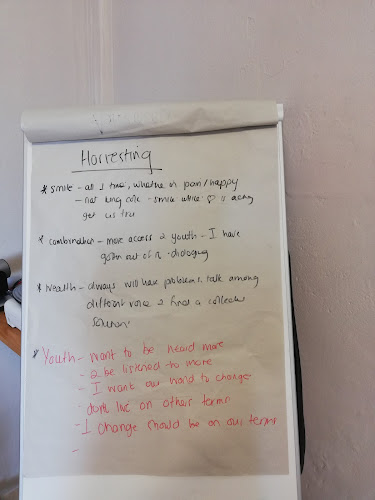 Harvesting
* Smile - at 1 time, whether in pain/happy
- not long - smile while ♡ is
get us tru
* Combination - more access 2 youth - I have
gotten out of it - dialoging
* Wealth - always will have problems, talk among
different voice 2 find a collective
solution
* Youth - want to be heard more
- 2 be listened to more
- I want our word to change
- don't live on other terms
- I change should be on our terms
-